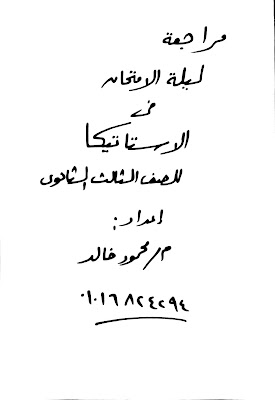 مراجعة
ليلة الامتحان
فى
الاستاتيكا
للصف الثالث الثانوى
إعداد:
م/محمود خالد
٠١٠١٦٨٢٤٢٩٤